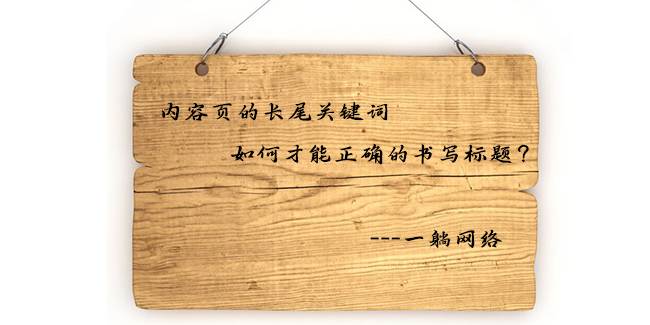 内容页的长尾关键词
如何才能正确的书写标题？
---一躺网络